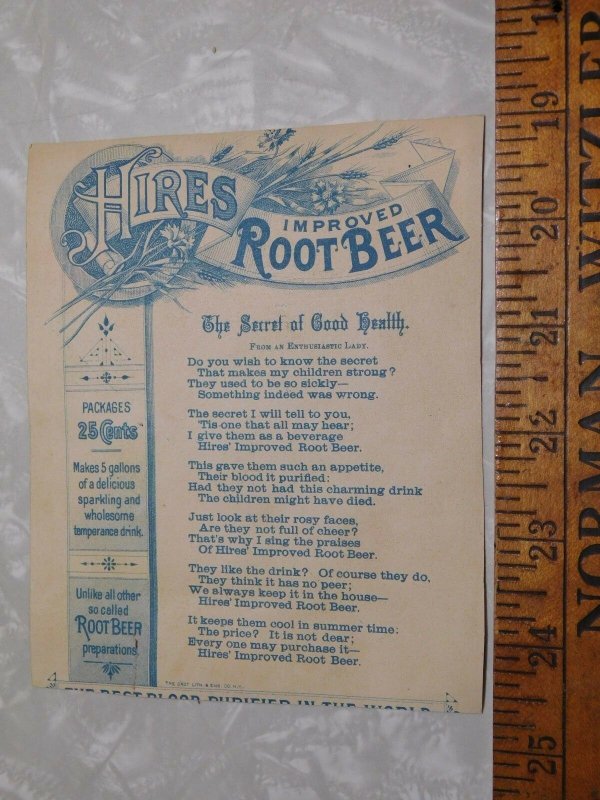 HIRES
IMPROVED
ROOT BEER
The Secret of Good Health.
FROM AN ENTHUSIASTIC LADY.
Do you wish to know the secret
That makes my children strong?
They used to be so sickly—
Something indeed was wrong.
The secret I will tell to you,
'Tis one that all may hear;
I give them as a beverage
Hires' Improved Root Beer.
This gave them such an appetite,
Their blood it purified:
Had they not had this charming drink
The children might have died.
Just look at their rosy faces,
Are they not full of cheer?
That's why I sing the praises
Of Hires' Improved Root Beer.
They like the drink? Of course they do,
They think it has no peer;
We always keep it in the house—
Hires' Improved Root Beer.
It keeps them cool in summer time;
The price? It is not dear;
Every one may purchase it—
Hires' Improved Root Beer.
PACKAGES
25 Cents
Makes 5 gallons
of a delicious
sparkling and
wholesome
temperance drink.
Unlike all other
so called
ROOT BEER
preparations.
THE BEST BLOOD PURIFIER IN THE WORLD
19
20
21
22
23
24
25
NORMAN WITZLER